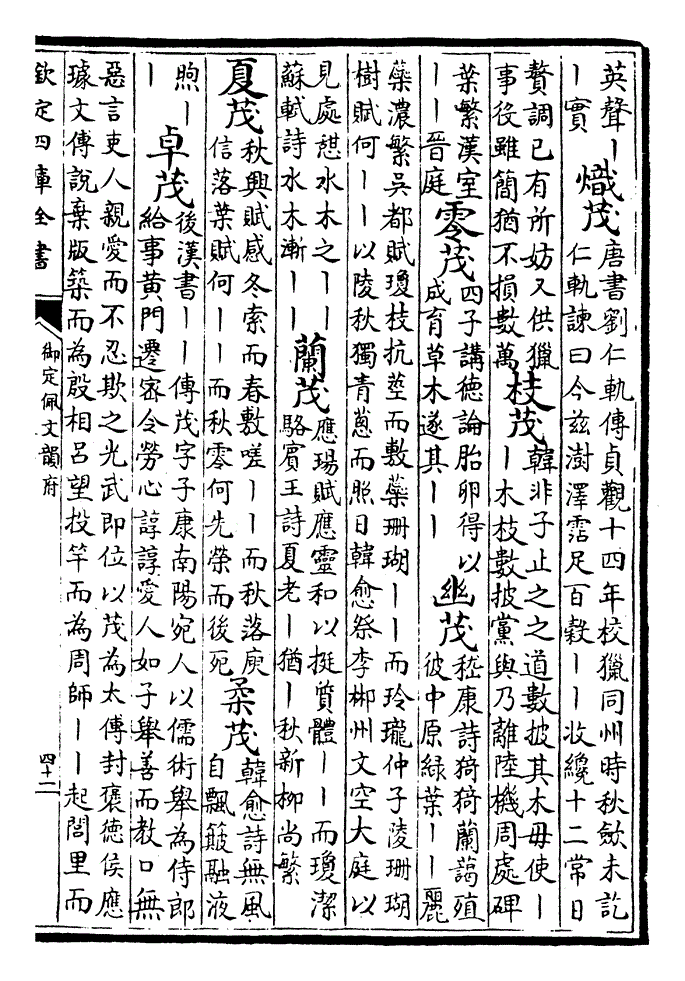 英聲｜
｜實
熾茂
唐書劉仁軌傳貞觀十四年校獵同州時秋斂未訖
仁軌諫曰今兹澍澤霑足百穀｜｜收纔十二常日
贅調已有所妨又供獵
事役雖簡猶不損數萬
枝茂
韓非子止之之道數披其木毋使｜
｜木枝數披黨與乃離陸機周處碑
葉繁漢室
｜｜晉庭
零茂
四子講德論胎卵得以
成育草木遂其｜｜
幽茂
嵇康詩猗猗蘭藹殖
彼中原緑葉｜｜麗
蘂濃繁吳都賦瓊枝抗莖而敷蘂珊瑚｜｜而玲瓏仲子陵珊瑚
樹賦何｜｜以陵秋獨青蔥而照日韓愈祭李郴州文空大庭以
見處憇水木之｜｜
蘇軾詩水木漸｜｜
蘭茂
應瑒賦應靈和以挺質體｜｜而瓊潔
駱賓王詩夏老｜猶｜秋新柳尚繁
夏茂
秋興賦感冬索而春敷嗟｜｜而秋落庾
信落葉賦何｜｜而秋零何先榮而後死
柔茂
韓愈詩無風
自飄簸融液
煦｜
｜
卓茂
後漢書｜｜傳茂字子康南陽宛人以儒術舉為侍郎
給事黄門遷密令勞心諄諄愛人如子舉善而教口無
惡言吏人親愛而不忍欺之光武即位以茂為太傅封褒德侯應
璩文傳說棄版築而為殷相呂望投竿而為周師｜｜起閭里而
欽定四庫全書
御定佩文韻府
四十二